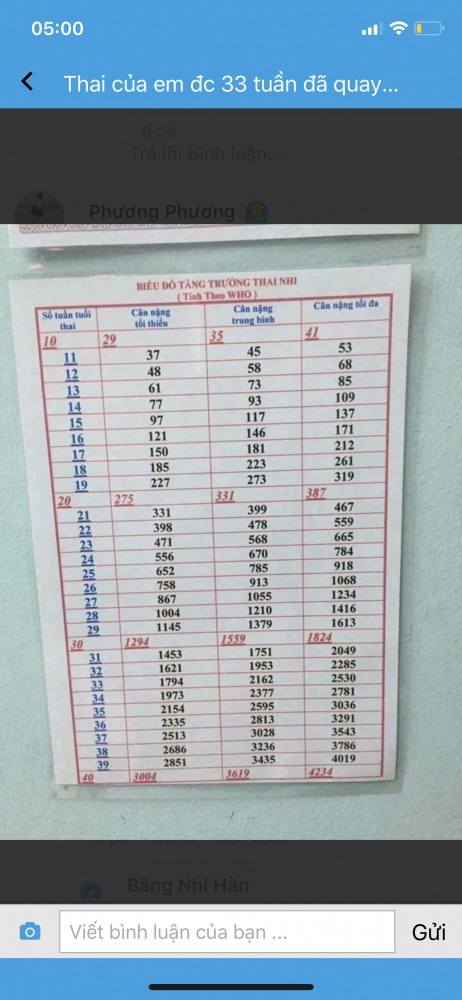 05:00
Thai của em đc 33 tuần đã quay...
6 giờ
Trả lời bình luận...
Phương Phương
BIỂU ĐỒ TĂNG TRƯỞNG THAI NHI
( Tính Theo WHO )
Số tuần tuổi thai Cân nặng tối thiểu Cân nặng trung bình Cân nặng tối đa
10 29 35 41
11 37 45 53
12 48 58 68
13 61 73 85
14 77 93 109
15 97 117 137
16 121 146 171
17 150 181 212
18 185 223 261
19 227 273 319
20 275 331 387
21 331 399 467
22 398 478 559
23 471 568 665
24 556 670 784
25 652 785 918
26 758 913 1068
27 867 1055 1234
28 1004 1210 1416
29 1145 1379 1613
30 1294 1559 1824
31 1453 1751 2049
32 1621 1953 2285
33 1794 2162 2530
34 1973 2377 2781
35 2154 2595 3036
36 2335 2813 3291
37 2513 3028 3543
38 2686 3236 3786
39 2851 3435 4019
40 3004 3619 4234
Băng Nhi Hàn
Viết bình luận của bạn ...
Gửi